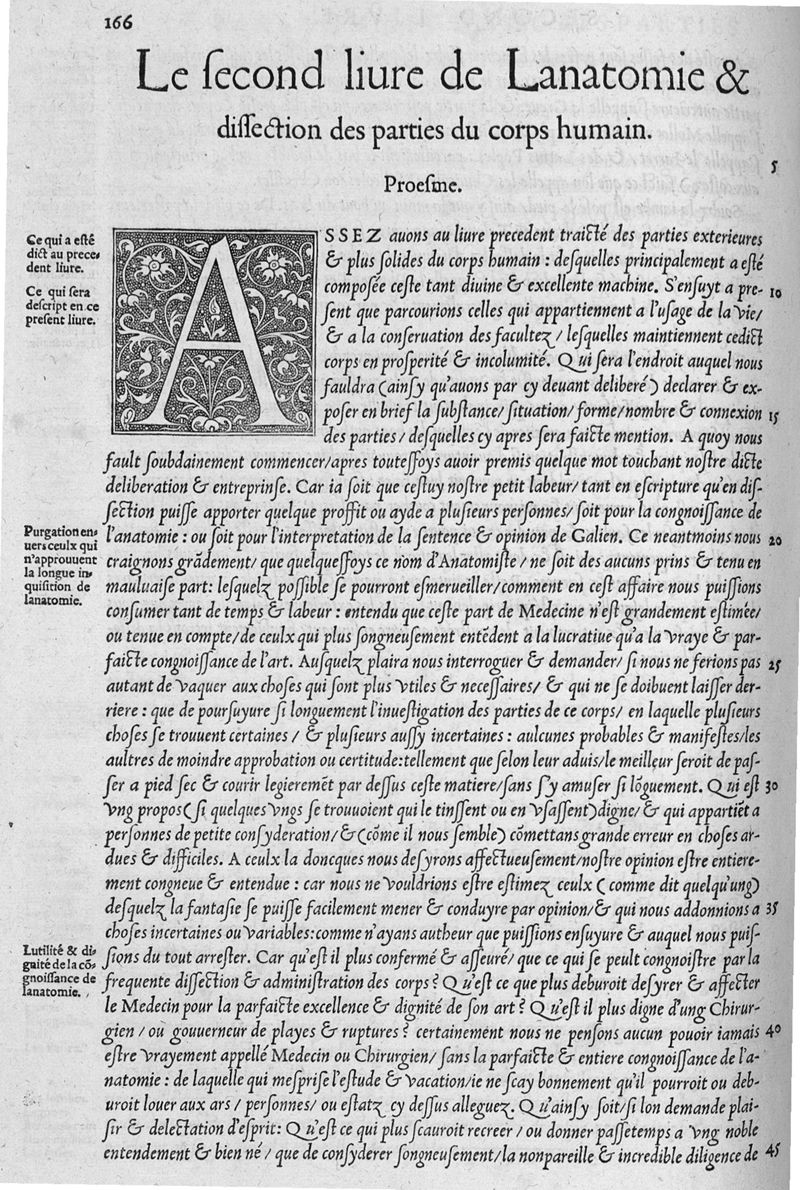 166
Le ſecond liure de Lanatomie &
diſſection des parties du corps humain.
5
Proeſme.
Ce qui a eſté
dict au prece-
dent liure.
Ce qui ſera
deſcript en ce
preſent liure.
ASSEZ auons au liure precedent traicté des parties exterieures
& plus ſolides du corps humain : deſquelles principalement a eſté
compoſée ceſte tant diuine & excellente machine. S'enſuyt a pre- 10
ſent que parcourions celles qui appartiennent a l'uſage de la vie/
& a la conſeruation des facultez / leſquelles maintiennent cedict
corps en proſperité & incolumité. Qui ſera l'endroit auquel nous
fauldra (ainſy qu'auons par cy deuant deliberé) declarer & ex-
poſer en brief la ſubſtance/ ſituation/ forme/nombre & connexion 15
des parties / deſquelles cy apres ſera faicte mention. A quoy nous
fault ſoubdainement commencer/apres touteſfoys auoir premis quelque mot touchant noſtre dicte
deliberation & entreprinſe. Car ia ſoit que ceſtuy noſtre petit labeur/ tant en eſcripture qu'en diſ-
ſection puiſſe apporter quelque proffit ou ayde a pluſieurs perſonnes/ ſoit pour la congnoiſſance de
Purgation en-
uers ceulx qui
n'approuuent
la longue in-
quiſition de
lanatomie.
l'anatomie : ou ſoit pour l'interpretation de la ſentence & opinion de Galien. Ce neantmoins nous 20
craignons grãdement/ que quelqueſſoys ce nom d'Anatomiſte / ne ſoit des aucuns prins & tenu en
mauluaiſe part: leſquelz poſſible ſe pourront eſmerueiller/comment en ceſt affaire nous puiſſions
conſumer tant de temps & labeur : entendu que ceſte part de Medecine n'eſt grandement eſtimée/
ou tenue en compte/de ceulx qui plus ſongneuſement entẽdent a la lucratiue qu'a la vraye & par-
faicte congnoiſſance de l'art. Auſquelz plaira nous interroguer & demander/ ſi nous ne ferions pas 25
autant de vaquer aux choſes qui ſont plus vtiles & neceſſaires/ & qui ne ſe doibuent laiſſer der-
riere : que de pourſuyure ſi longuement l'inueſtigation des parties de ce corps/ en laquelle pluſieurs
choſes ſe trouuent certaines / & pluſieurs auſſy incertaines : aulcunes probables & manifeſtes/les
aultres de moindre approbation ou certitude:tellement que ſelon leur aduis/le meilleur ſeroit de paſ-
ſer a pied ſec & courir legieremẽt par deſſus ceſte matiere/ſans ſ'y amuſer ſi lõguement. Qui eſt 30
vng propos( ſi quelques vngs ſe trouuoient qui le tinſſent ou en vſaſſent)digne/ & qui appartiẽt a
perſonnes de petite conſyderation/&(cõme il nous ſemble) cõmettans grande erreur en choſes ar-
dues & difficiles. A ceulx la doncques nous deſyrons affectueuſement/noſtre opinion eſtre entiere-
ment congneue & entendue : car nous ne vouldrions eſtre eſtimez ceulx ( comme dit quelqu'ung)
deſquelz la fantaſie ſe puiſſe facilement mener & conduyre par opinion/& qui nous addonnions a 35
choſes incertaines ou variables:comme n'ayans autheur que puiſſions enſuyure & auquel nous puiſ-
Lutilité & di-
gnité de la cõ-
gnoiſſance de
lanatomie.
ſions du tout arreſter. Car qu'eſt il plus confermé & aſſeuré/ que ce qui ſe peult congnoiſtre par la
frequente diſſection & adminiſtration des corps ? Qu'eſt ce que plus deburoit deſyrer & affecter
le Medecin pour la parfaicte excellence & dignité de ſon art ? Qu'eſt il plus digne d'ung Chirur-
gien / ou gouuerneur de playes & ruptures ? certainement nous ne penſons aucun pouoir iamais 40
eſtre vrayement appellé Medecin ou Chirurgien/ ſans la parfaicte & entiere congnoiſſance de l'a-
natomie : de laquelle qui meſpriſe l'eſtude & vacation/ie ne ſcay bonnement qu'il pourroit ou deb-
uroit louer aux ars / perſonnes/ ou eſtatz cy deſſus alleguez. Qu'ainſy ſoit/ſi lon demande plai-
ſir & delectation d'eſprit: Qu'eſt ce qui plus ſcauroit recreer / ou donner paſſetemps a vng noble
entendement & bien né / que de conſyderer ſongneuſement/la nonpareille & incredible diligence de 45